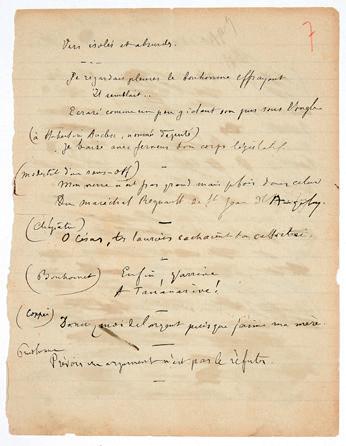 7
Vers isolés et absurdes.
Je regardais pleurer le bonhomme effrayant
Il semblait..
Ecrasé comme un pou giclant son pus sous l'ongle
(à Hubertin Auclert, nommée députée)
Je baise avec ferveur ton corps législatif.
(modestie d'un
Mon verre n'est pas grand mais je bois dans celui
Du maréchal Regnault de St Jean d'Angély
O César, tes lauriers cachaient ta calvitie.
(Bonhomet) Enfin j'arrive
A Tananarive!
(Coppée) Donnez-moi de l'argent puisque j'aime ma mère.
Prudhomme
Prévoir un argument n'est pas le réfuter.